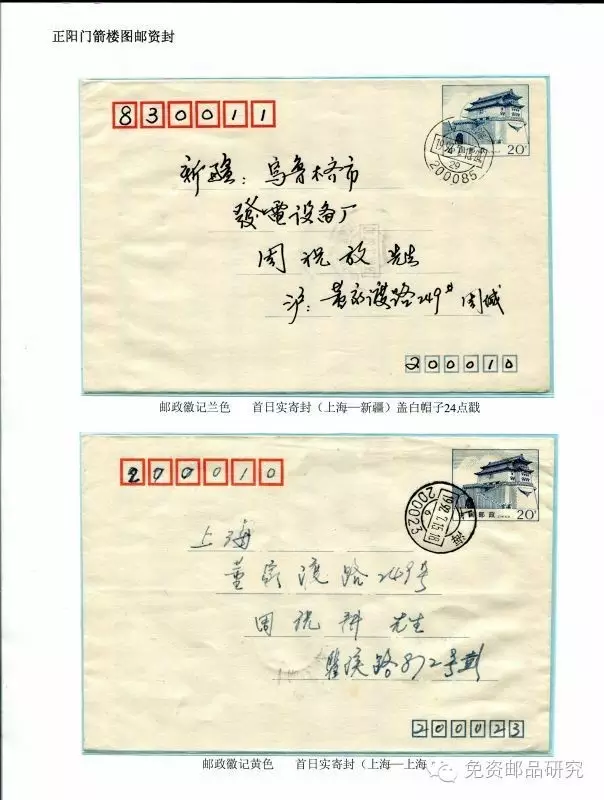 正阳门箭楼图邮资封
830011
20分
200085
新疆：乌鲁木齐市
發電设备厂
周祝放 先生
沪：董家渡路249# 周缄
200010
邮政徽记兰色 首日实寄封（上海—新疆）盖白帽子24点戳
200010
1992.7.15.18
200023
中国邮政
20分
上海
董家渡路249号
周祝 先生
瞿溪路872号
200023
邮政徽记黄色 首日实寄封（上海—上海
免资邮品研究